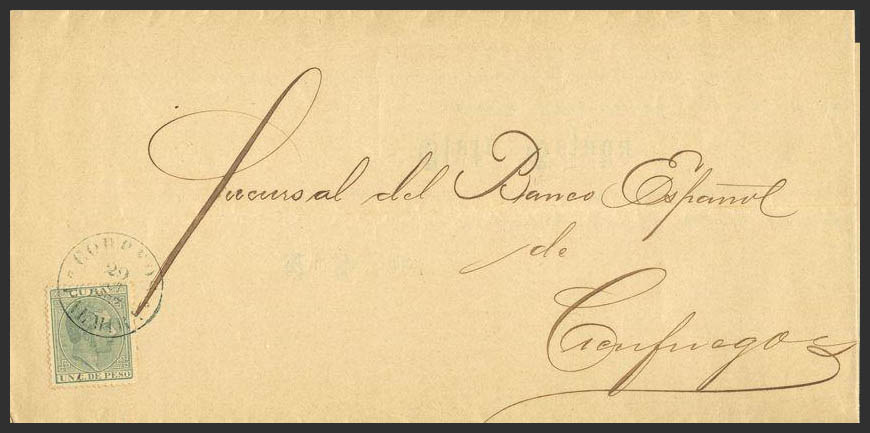 Sucursal del Banco Español
de
Cienfuegos
CORREO
29
CUBA
UN C. DE PESO